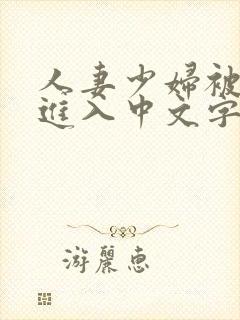 人妻少婦被
進入中文字
游麗惠